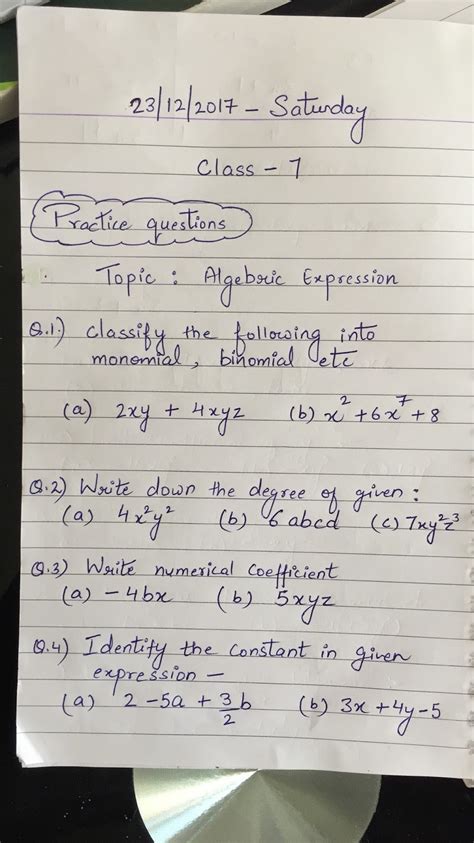 23/12/2017 - Saturday
Class - 7
Practice questions
Topic : Algebric Expression
Q.1) Classify the following into
monomial, binomial etc
(a) 2xy + 4xyz (b) x² + 6x⁷ + 8
Q.2) Write down the degree of given :
(a) 4x²y² (b) 6abcd (c) 7xy²z³
Q.3) Write numerical coefficient
(a) - 4bx (b) 5xyz
Q.4) Identify the constant in given
expression -
(a) 2 - 5a + 3/2 b (b) 3x + 4y - 5